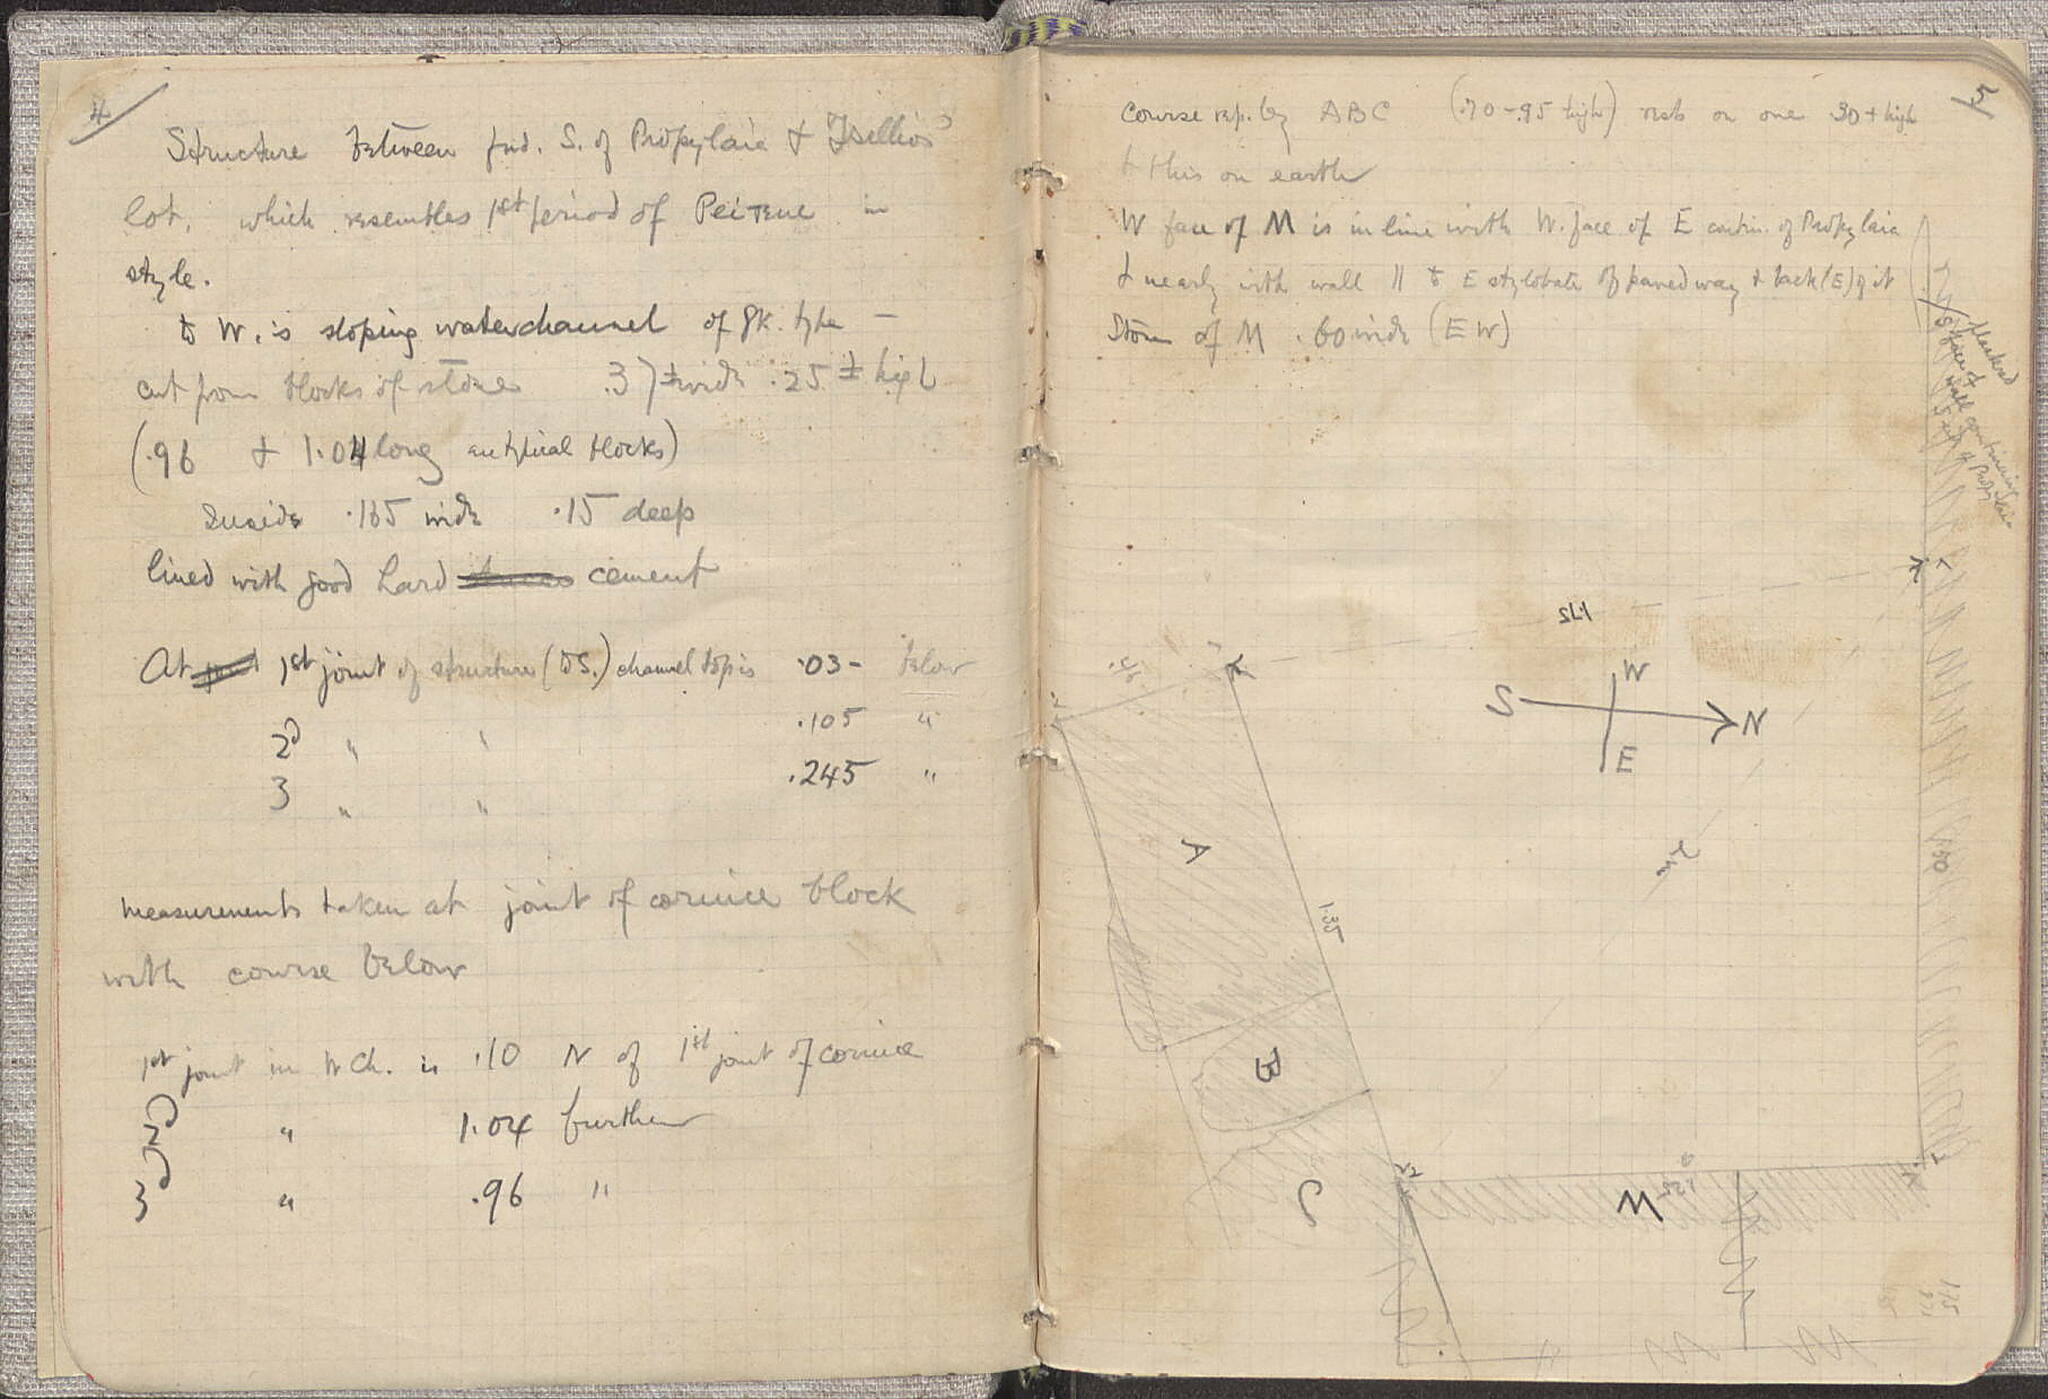 4
Structure between fnd. S. of Propylaia & Tsellios'
lot, which resembles 1st period of Peirene in
style.
to W. is sloping waterchannel of gk. type —
cut from blocks of stone .37± wide .25± high
(.96 & 1.04 long are typical blocks)
Inside .165 wide .15 deep
lined with good hard cement
At 1st joint of structure (to S.) channel top is .03- below
2d " " .105 "
3 " " .245 "
measurements taken at joint of cornice block
with course below
1st joint in W Ch. is .10 N of 1st joint of cornice
2d " 1.04 further
3d " .96 "
5
Course rep. by ABC (.70-.95 high) rests on one 30+ high
& this on earth
W face of M is in line with W. face of E contin. of Propylaia
& nearly with wall || to E stylobate of paved way & back (E) of it
Stones of M .60 wide (E W)
S face of wall continuing
S end of Propylaia
1.75
W
S N
E
2m
1.50
A
1.35
B
C
M
1.25